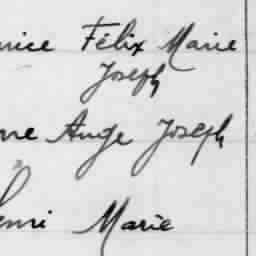 rice Félix Marie
Joseph
ne Ange Joseph
enri Marie